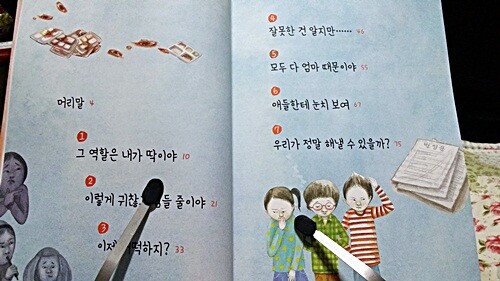 머리말 4
1
그 역할은 내가 딱이야 10
2
이렇게 귀찮 들 줄이야 21
3
이제 떡하지? 33
4
잘못한 건 알지만…… 44
5
모두 다 엄마 때문이야 55
6
애들한테 눈치 보여 67
7
우리가 정말 해낼 수 있을까? 75